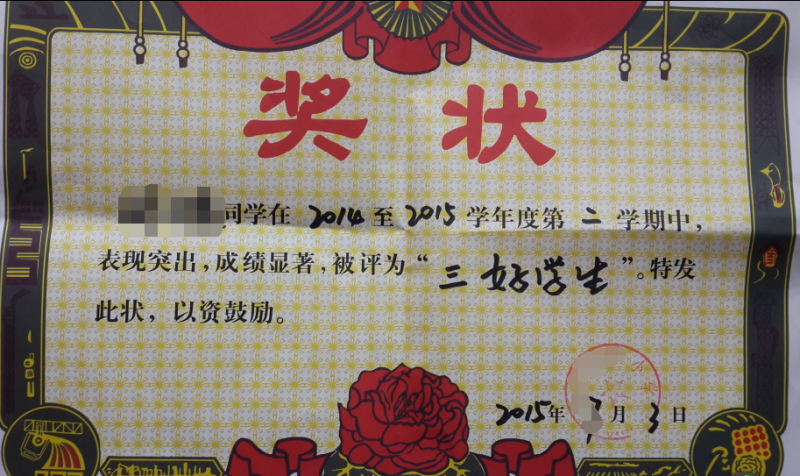 奖状
同学在 2014 至 2015 学年度第 二 学期中,
表现突出,成绩显著,被评为“三好学生”。特发
此状,以资鼓励。
2015 年 月 3 日